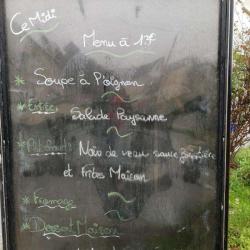 Ce Midi
Menu à 13€
* Soupe à l'oignon
* Entrée Salade Paysanne
* Plat Noix de veau sauce
et frites Maison
* Fromage
* Dessert Maison